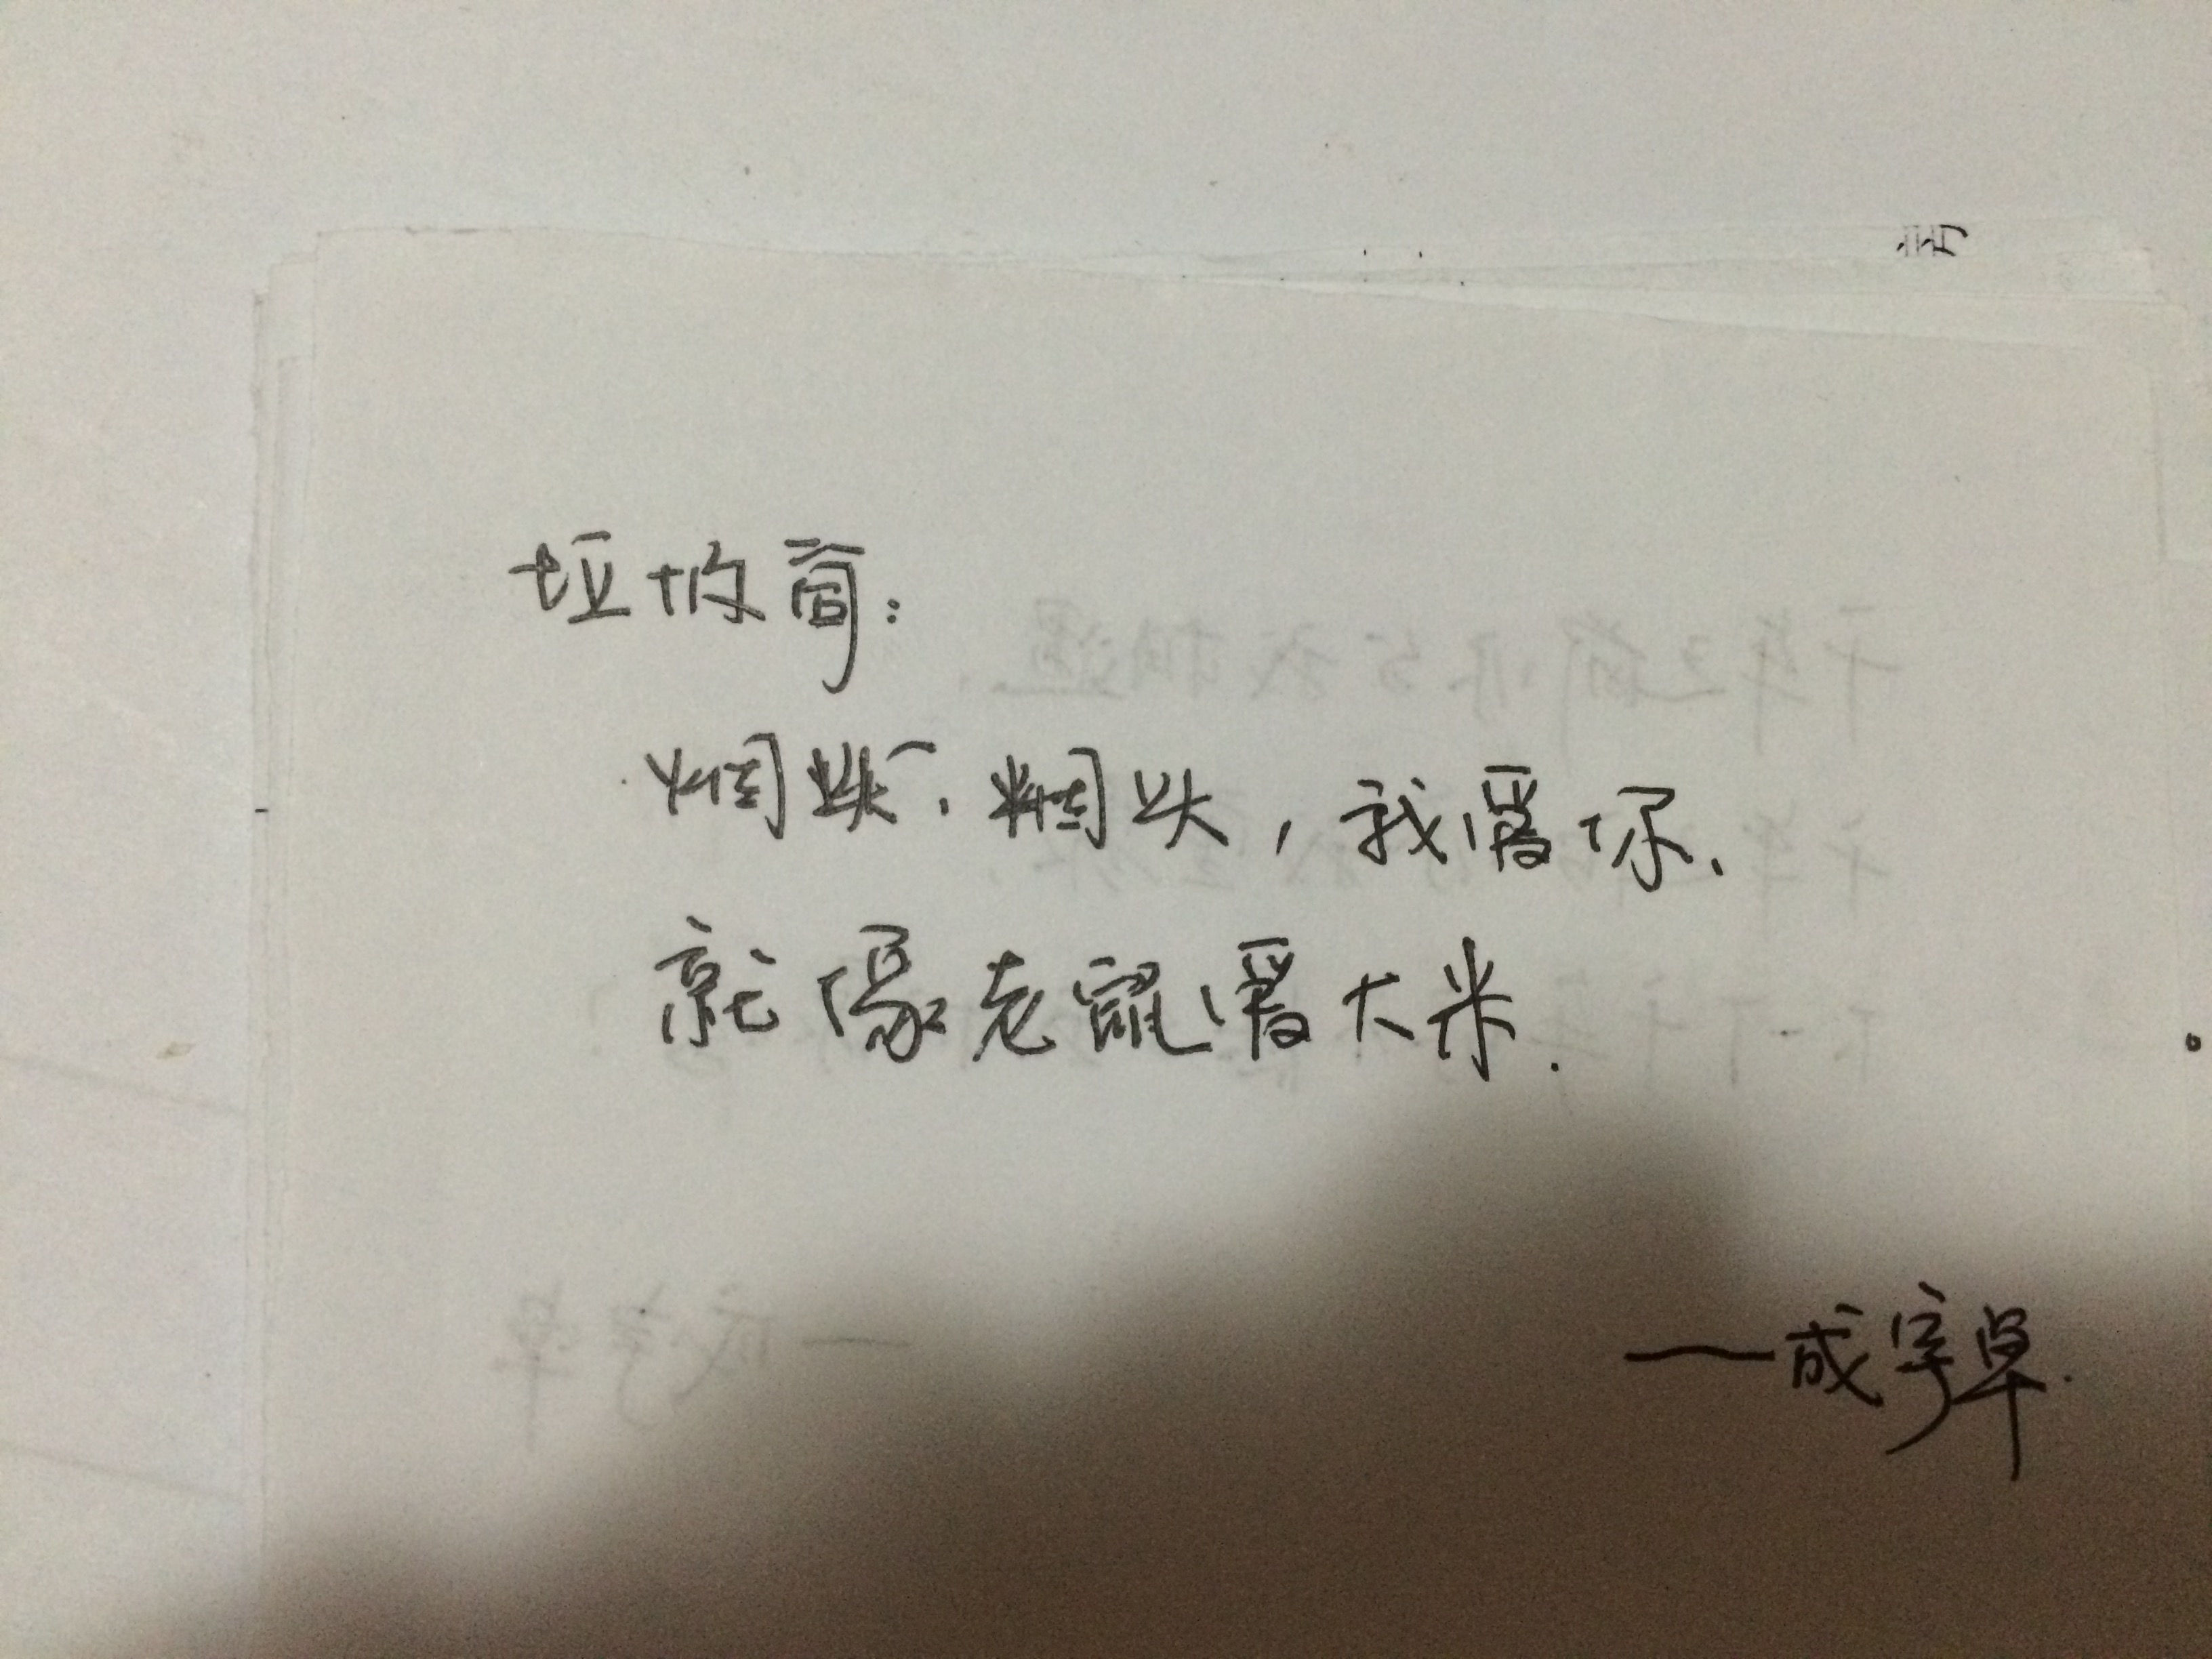 垃圾筒：
烟头、烟头，我爱你、
就像老鼠爱大米．
——成宇卓．